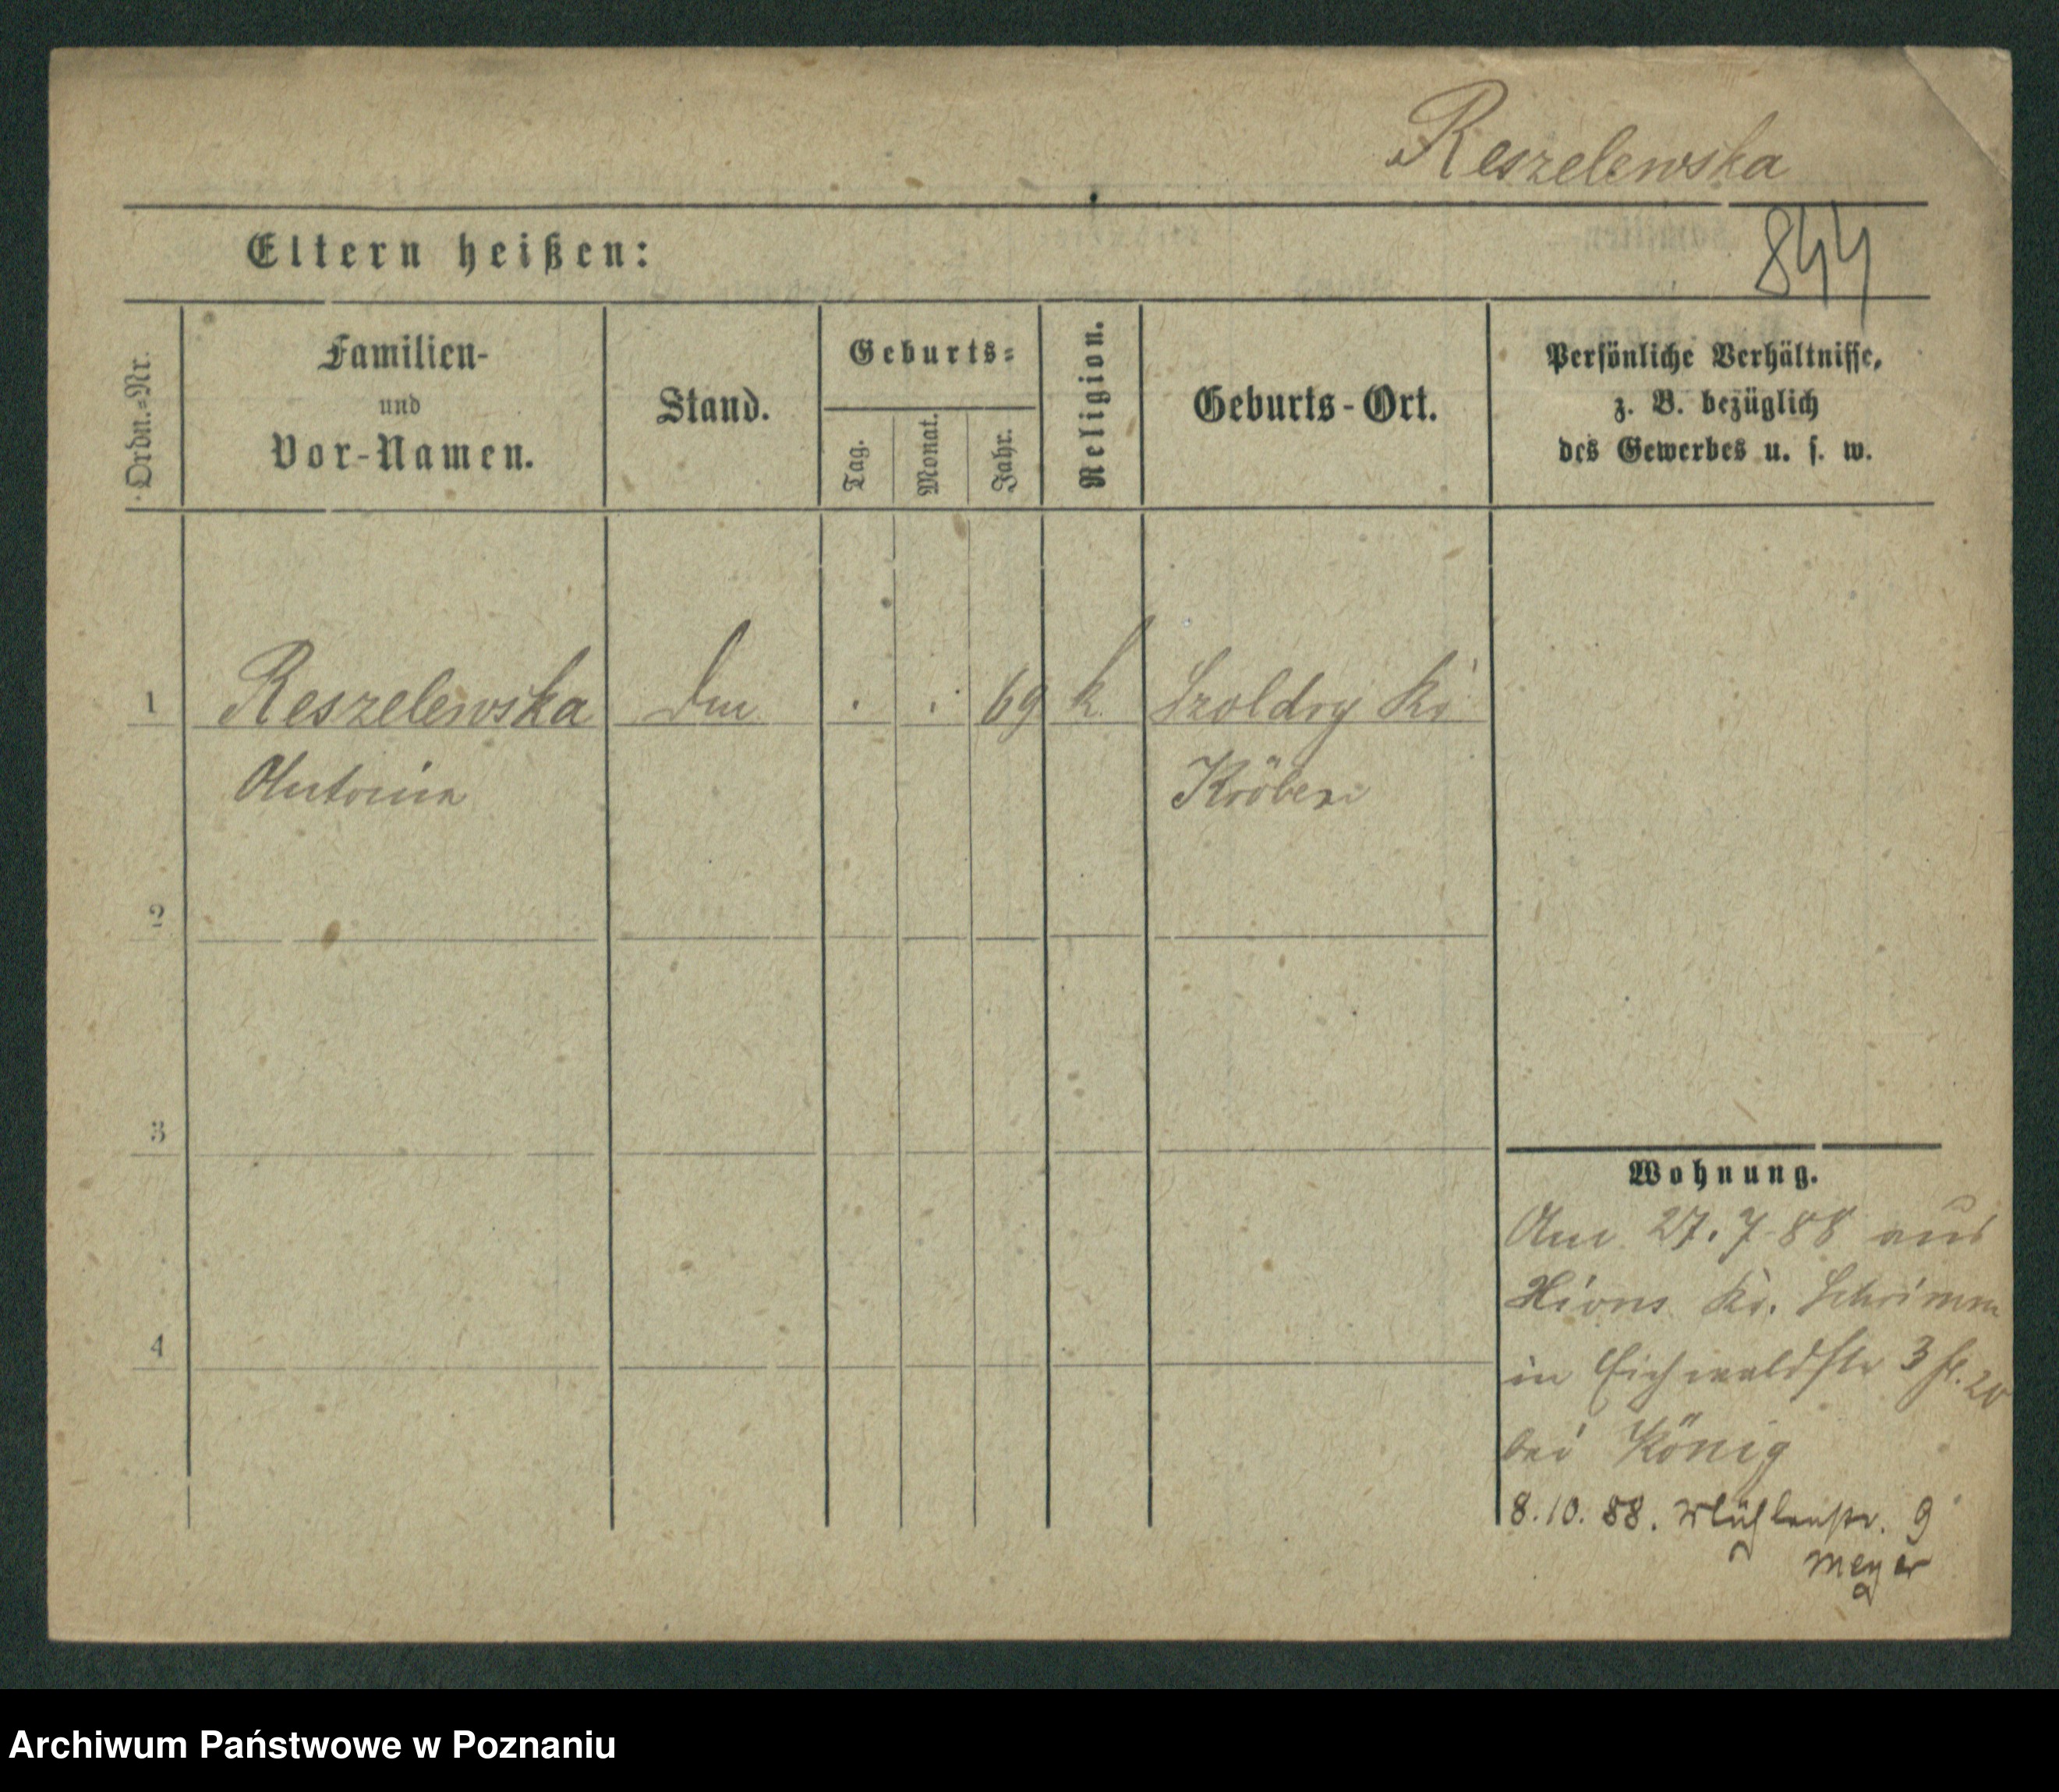 Reszelewska
844
Eltern heißen:
Ordn.-Nr.
Familien-
und
Vor-Namen.
Stand.
Geburts-
Tag.
Monat.
Jahr.
Religion.
Geburts-Ort.
Persönliche Verhältnisse,
z. B. bezüglich
des Gewerbes u. s. w.
1 Reszelewska . . 69 k. Szoldry Kr
Antonia Kröben
2
3
4
Wohnung.
Am 27.7.88 aus
Xions Kr. Schrimm
in Eichwaldstr 3
bei König
8.10.88. Mühlenstr. 9
Meyer
Archiwum Państwowe w Poznaniu